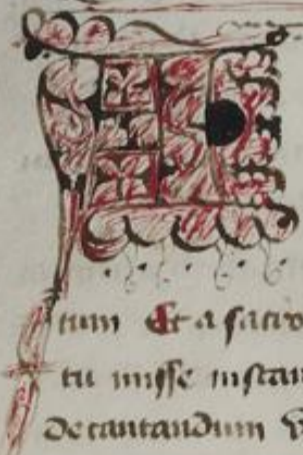 tum Et a sacro
tu misse instan
Decantandum